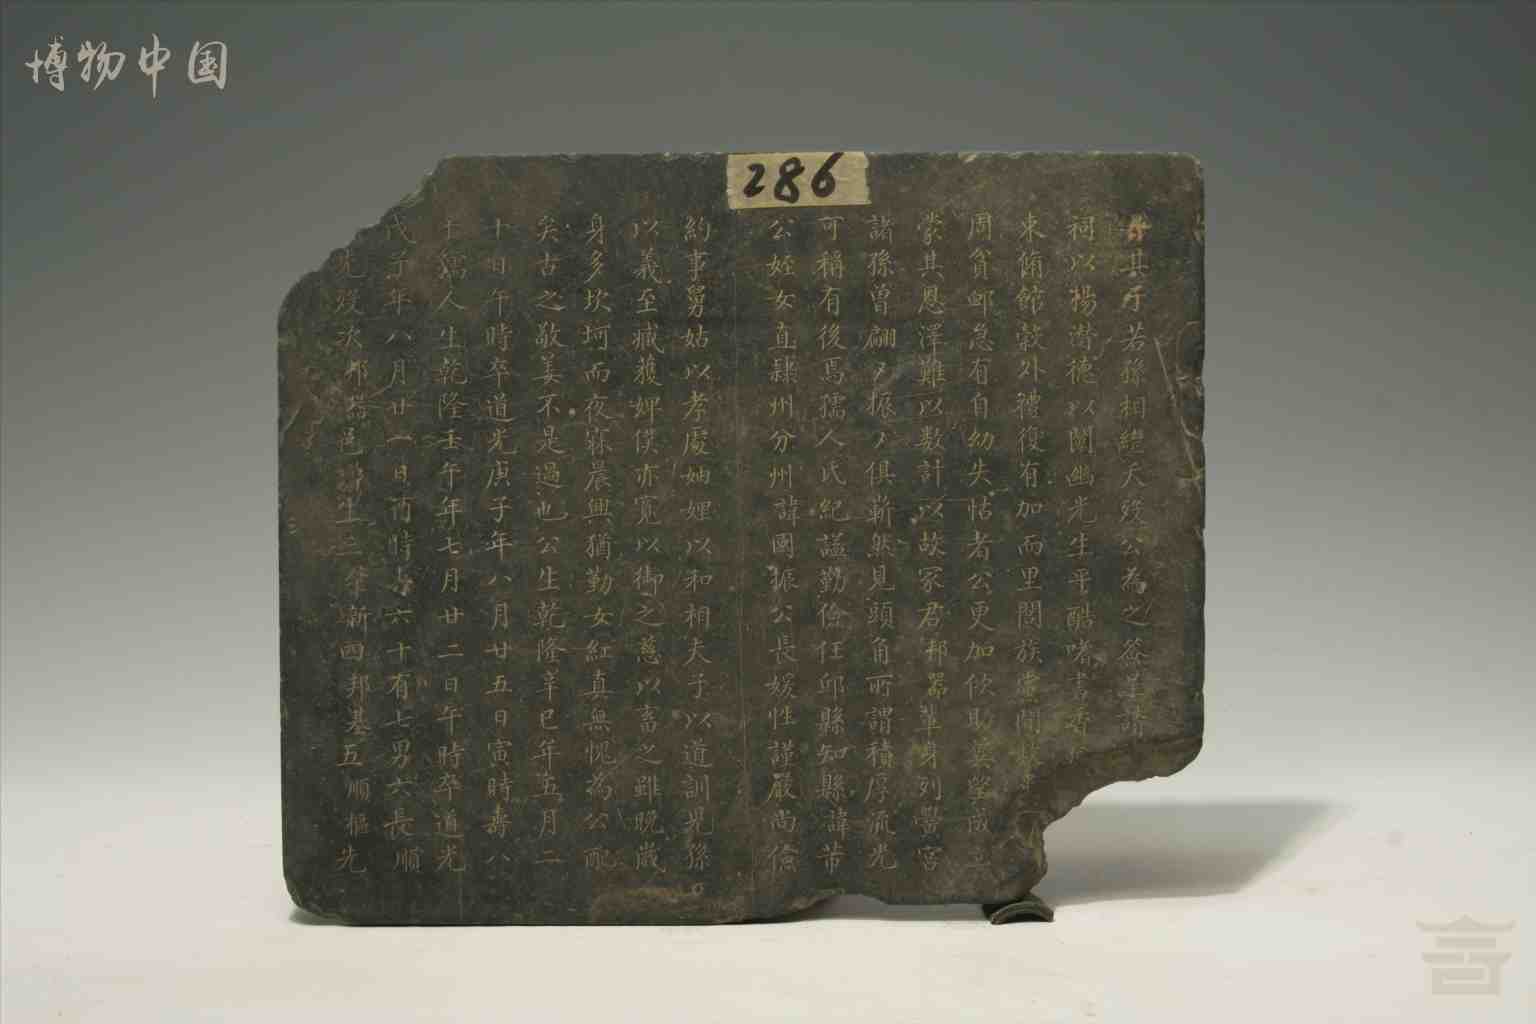 博物中国
286
其子若孫相繼夭歿公為之
祠以揚潛德以闡幽光生平酷嗜書
東脩館穀外禮復有加而里閭族黨間
周貧邮急有自幼失怙者公更加佽助
蒙其恩澤難以数計以故冢君邦器單身列黌宮
諸孫曾翩〻振〻俱嶄然見頭角所謂積厚流光
可稱有後焉孺人氏紀諡勤儉任邱縣知縣諱芾
公姪女直隸州分州諱國振公長媛性謹嚴尚儉
約事舅姑以孝處妯娌以和相夫子以道訓兒孫
以義至臧獲婢僕亦寬以御之慈以畜之雖晚歲
身多坎坷而夜寐晨興猶勤女紅真無愧為公配
矣古之敬姜不是過也公生乾隆辛巳年五月二
十日午時卒道光庚子年八月廿五日寅時壽八
十孺人生乾隆壬午年七月廿二日午時卒道光
戊子年八月廿一日酉時壽六十有七男六長順
先歿次邦器邑庠生三榮新四邦基五順樞先